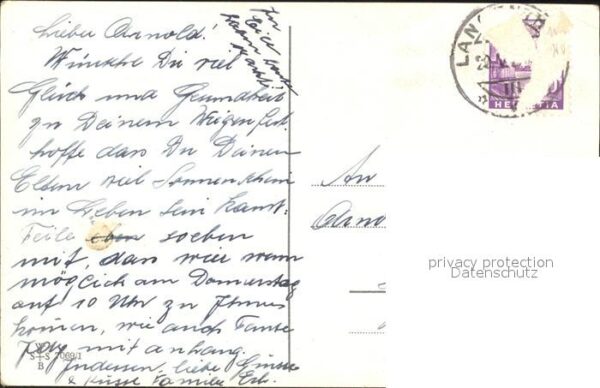 Lieber Arnold!
Wünsche Dir viel
Glück und Gesundheit
zu Deinem Wiegenfest
hoffe dass Du Deinen
Eltern viel Sonnenschein
im Leben sein kannst.
Teile eben soeben
mit, dass wir wenn
möglich am Donnerstag
auf 10 Uhr zu Ihnen
kommen, wie auch Tante
mit anhang.
Indessen, liebe Grüsse
& Küsse Familie
S+S 7069/1
B
An
Arno
LANG
HELVETIA
privacy protection
Datenschutz